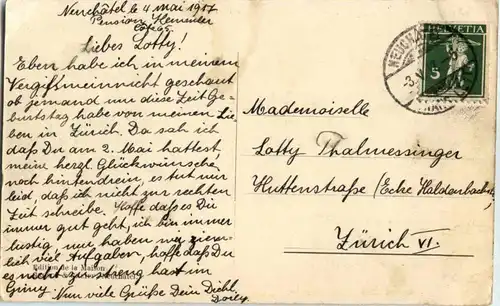 Neuchâtel le 4 mai 1917
Pension
Liebes Lotty!
Eben habe ich in meinem
Vergißmeinnicht geschaut
ob jemand um diese Zeit Ge-
burtstag habe von meinen Lie-
ben in Zürich. Da sah ich
daß Du am 2. Mai hattest
meine herzl. Glückwünsche
noch hintendrein, es tut mir
leid, daß ich nicht zur rechten
Zeit schreibe. Hoffe daß es Dir
immer gut geht, ich bin immer
lustig, nur haben wir ziem-
lich viel Aufgaben, hoffe daß Du
es nicht zu streng hast im
Gimy. Nun viele Grüße Dein Dichl.
Edition de la Maison
HELVETIA
5
Mademoiselle
Lotty Thalmessinger
Huttenstraße (Ecke Haldenbachstr.
Zürich VI.